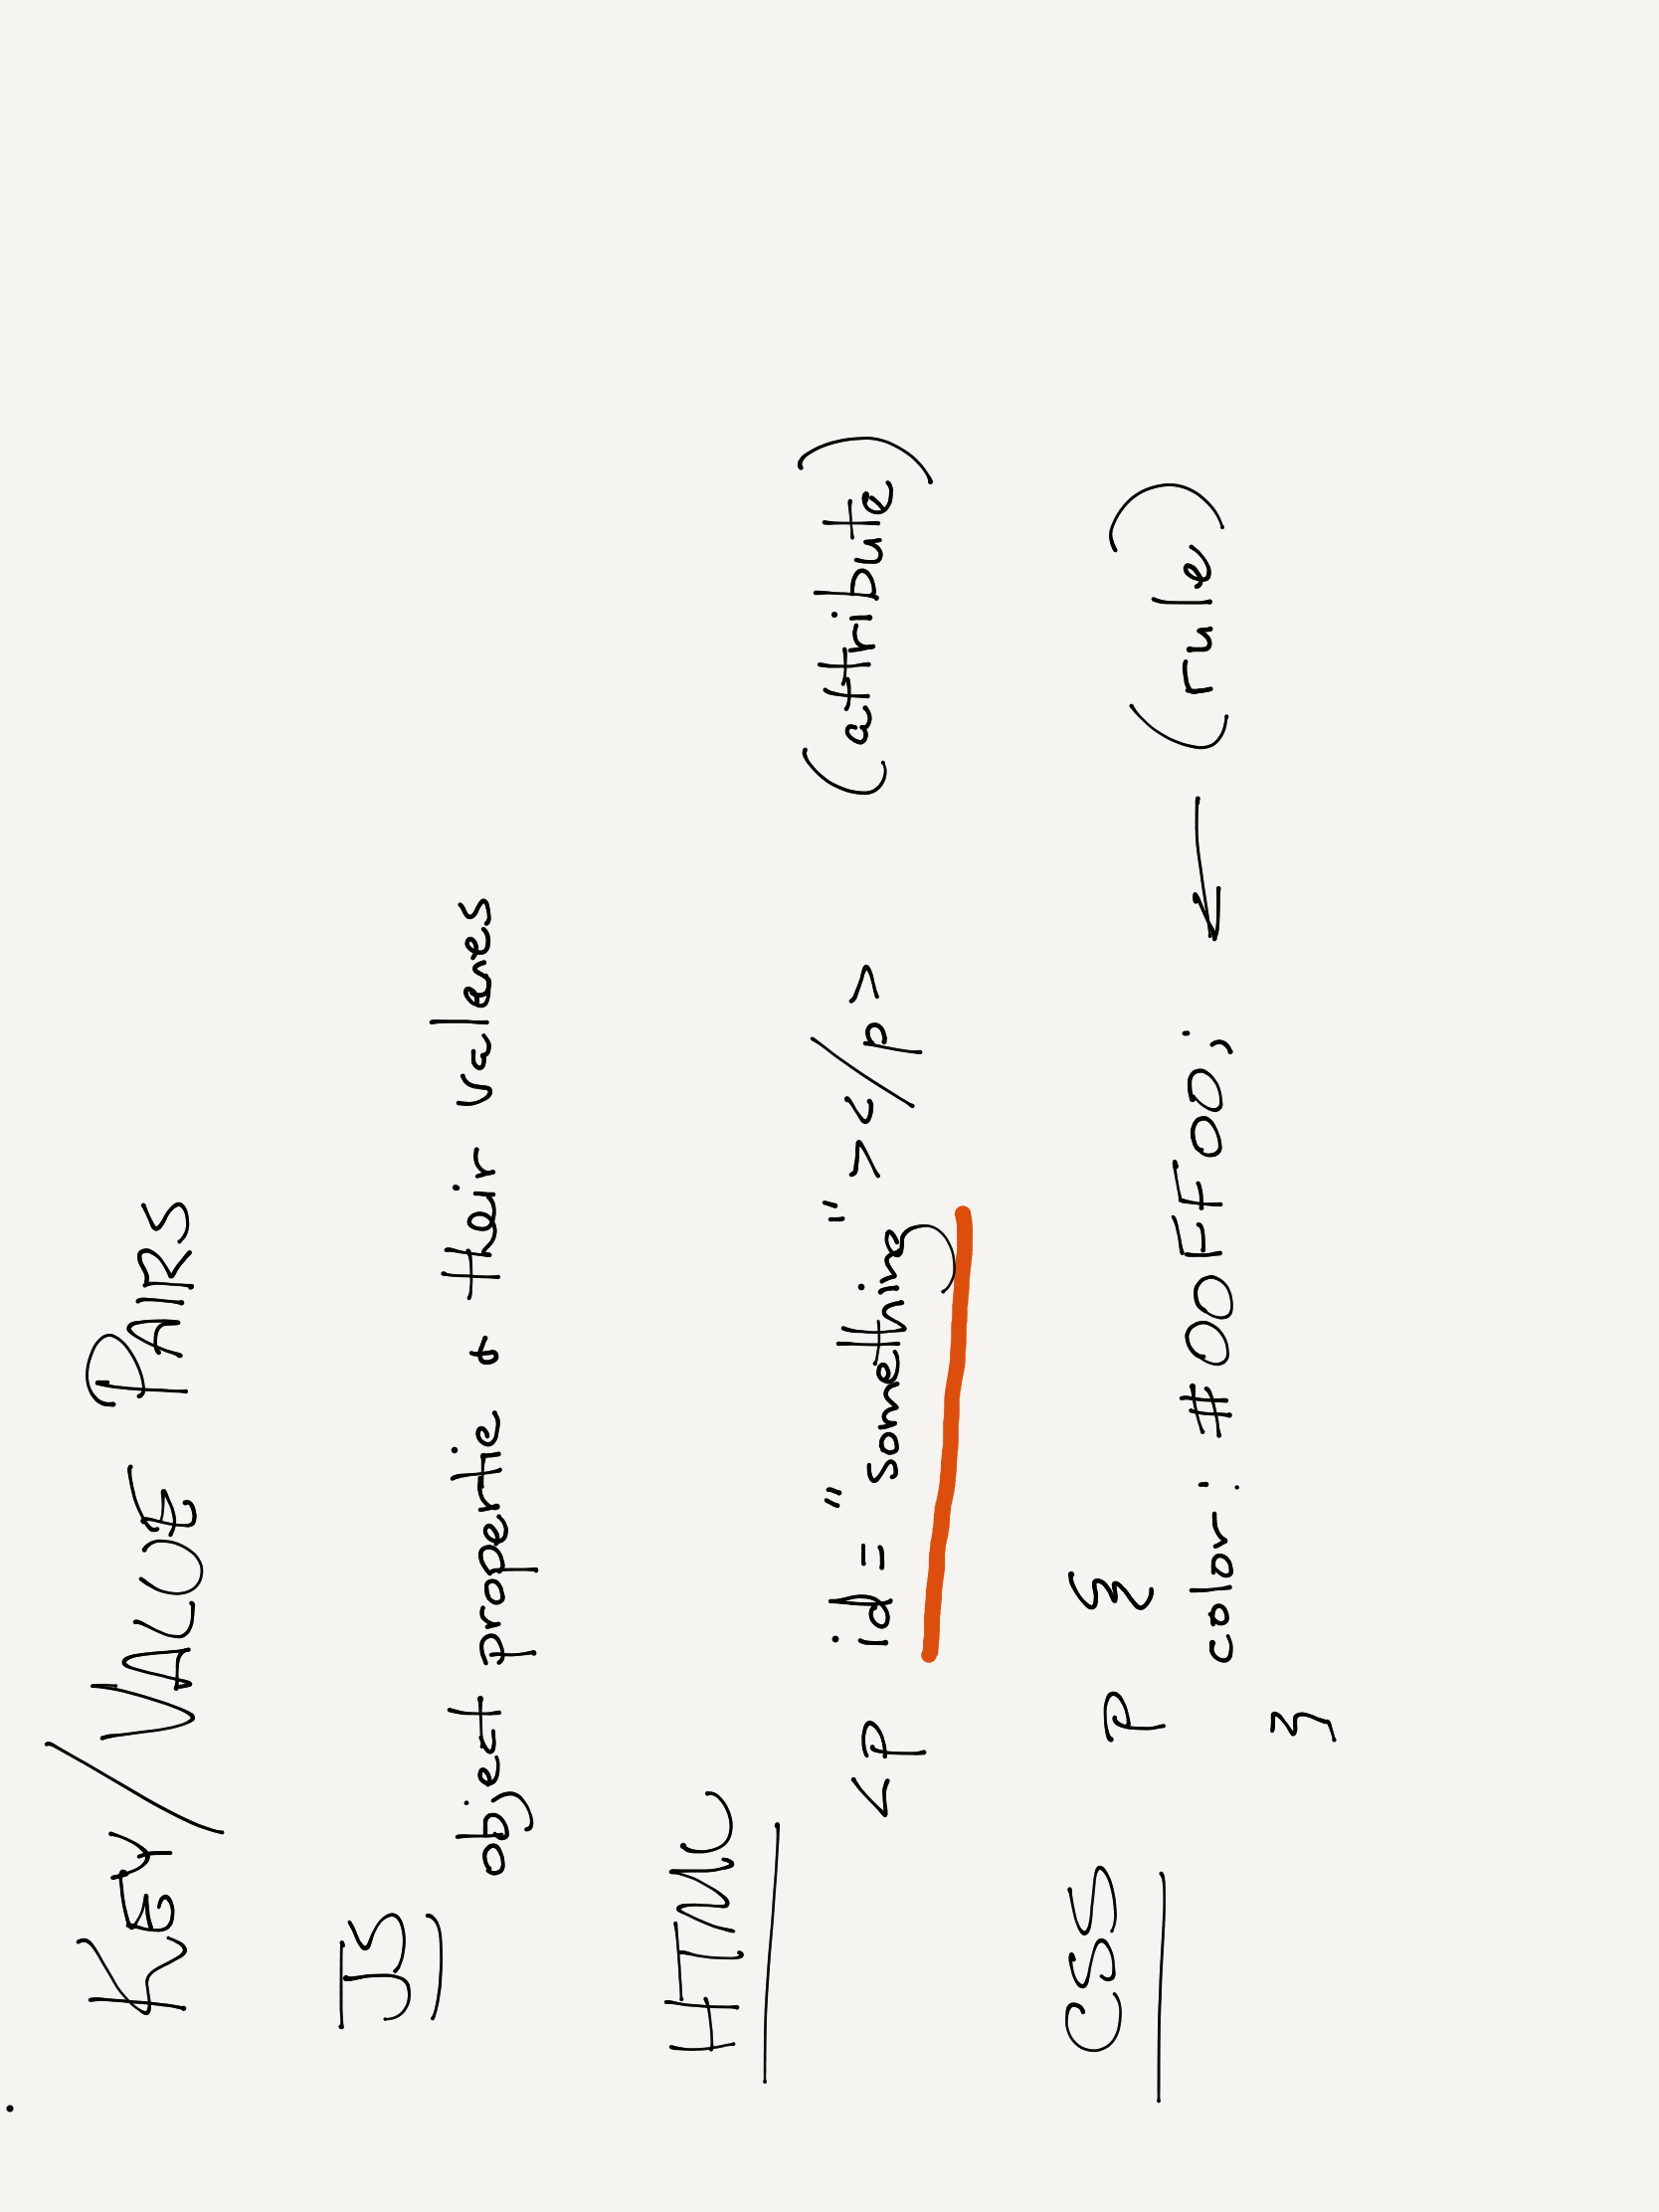 KEY/VALUE PAIRS
JS
object propertie & their values
HTML
<p id="something"></p> (attribute)
CSS
p {
color: #00FF00; ← (rule)
}